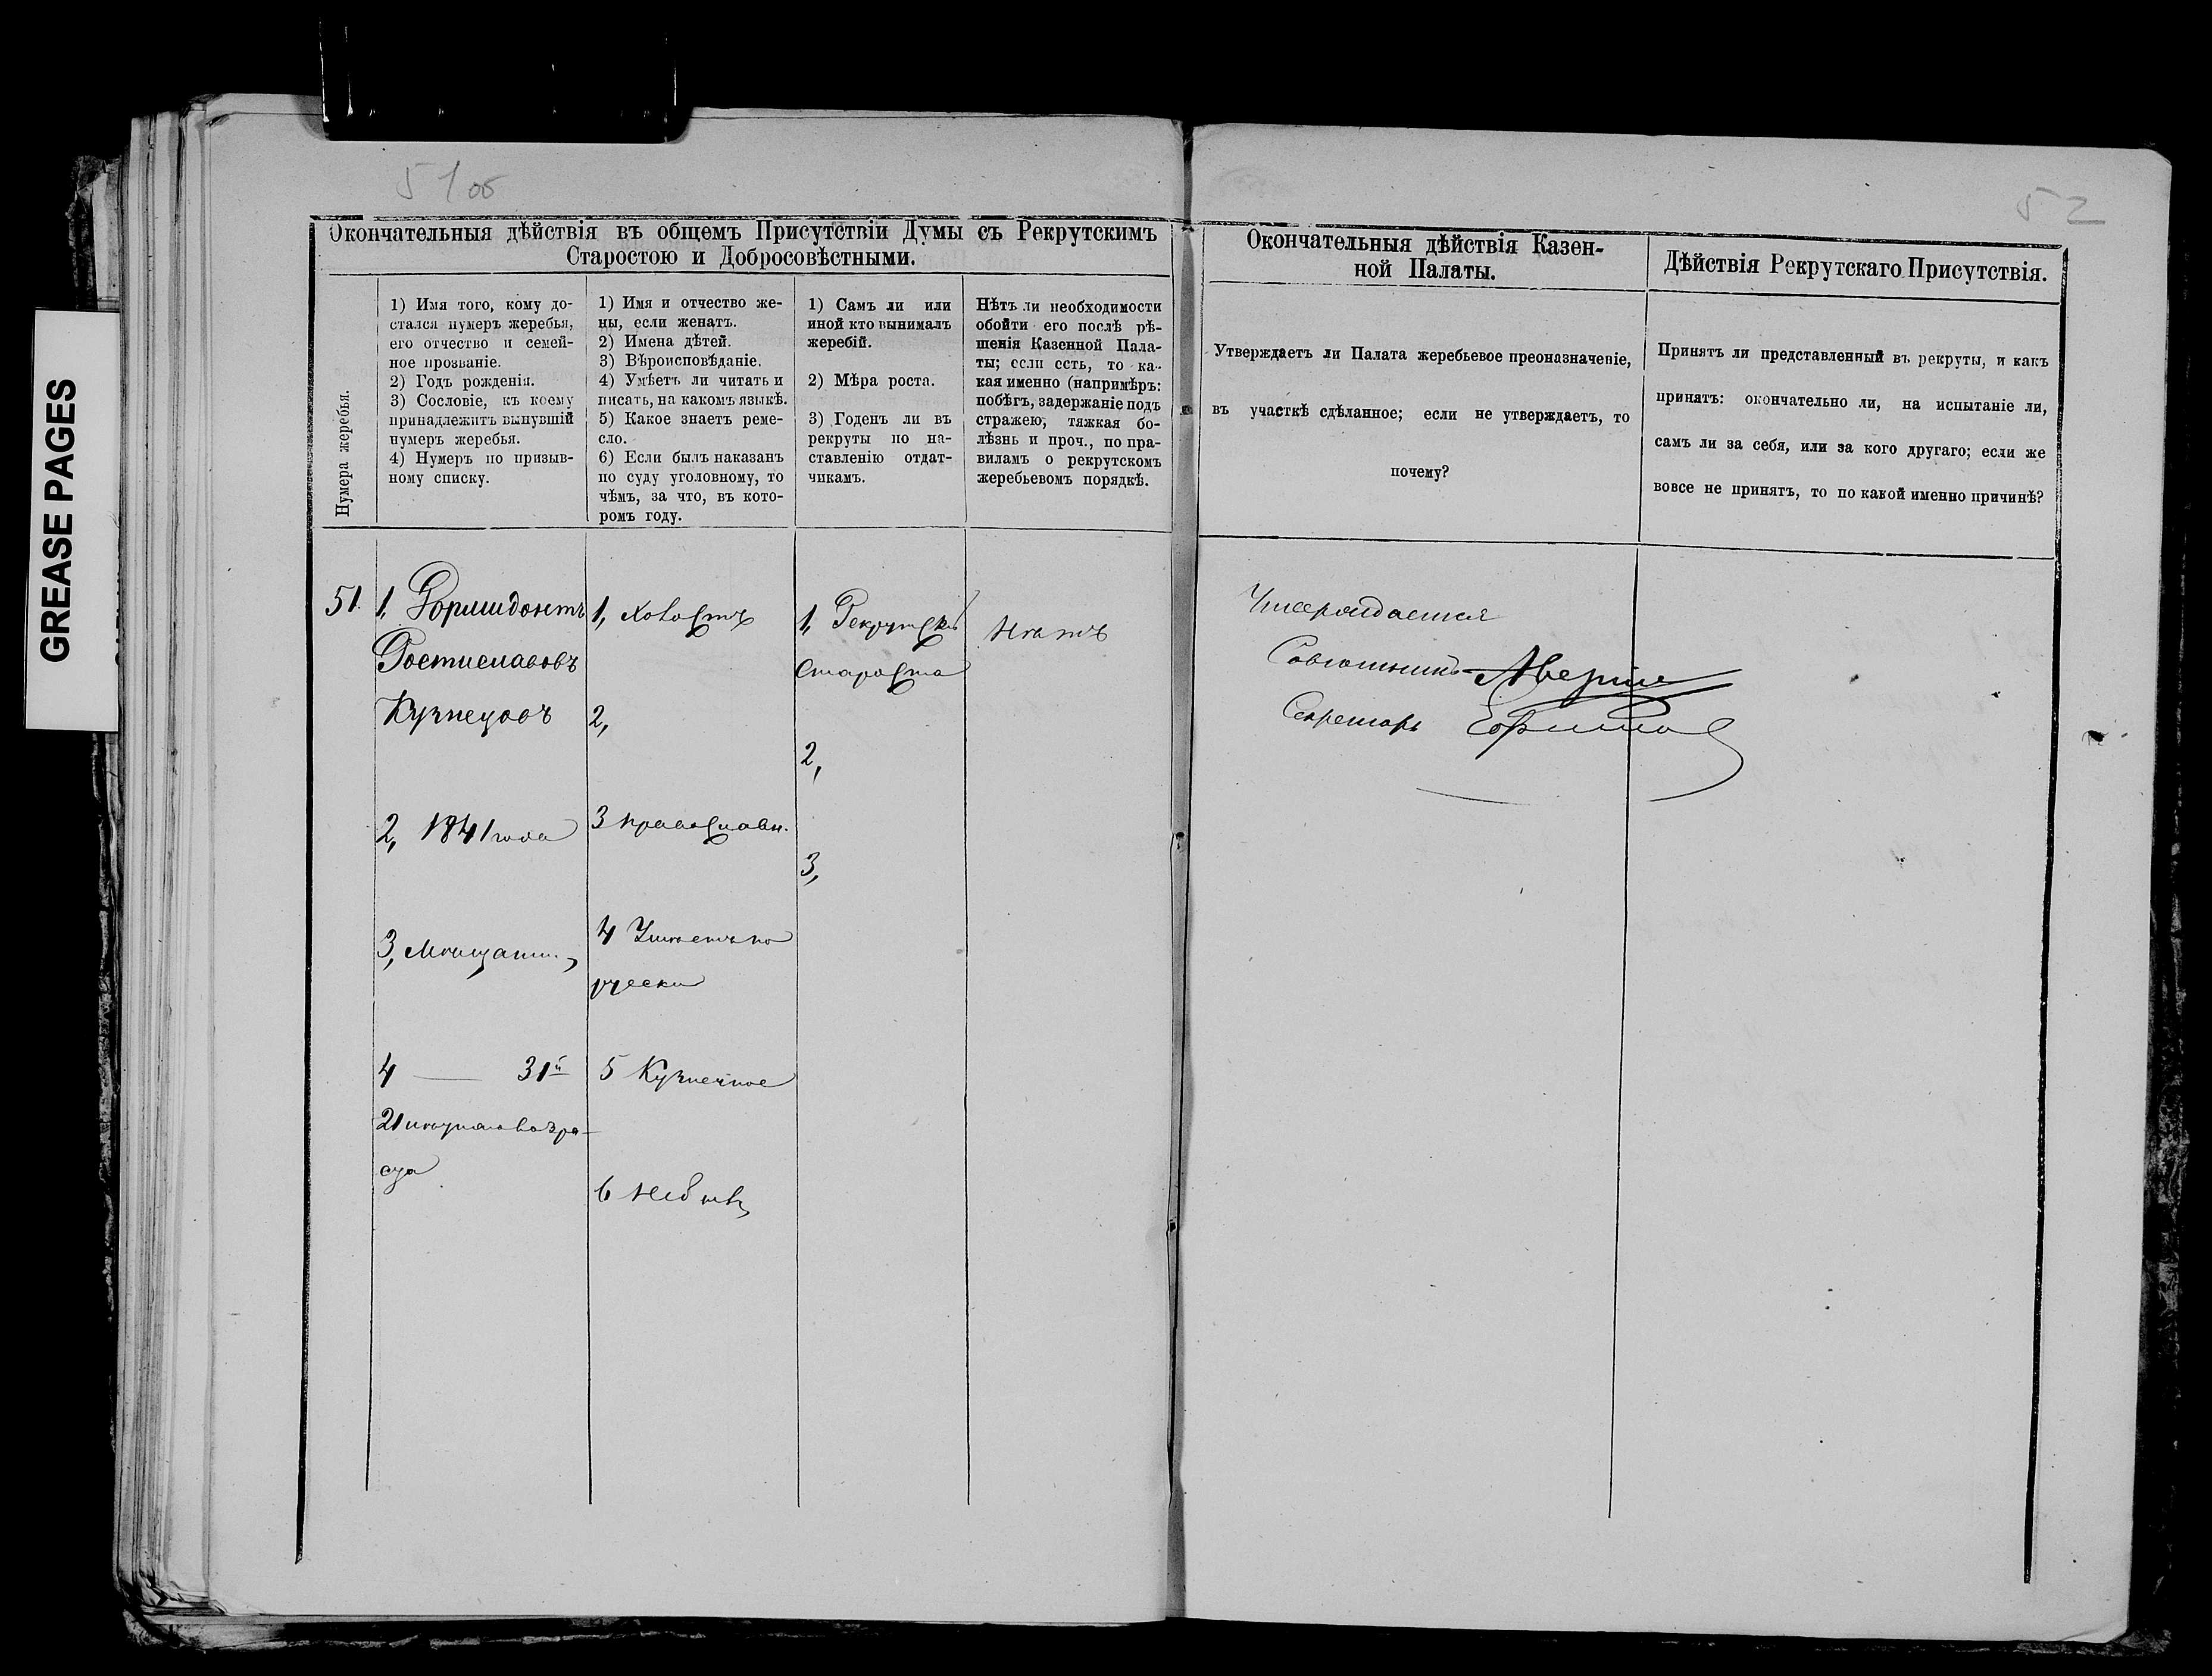 GREASE PAGES
51об
52
Окончательныя дѣйствія въ общемъ Присутствіи Думы съ Рекрутскимъ
Старостою и Добросовѣстными.
Нумера жеребья.
1) Имя того, кому до-
стался нумеръ жеребья,
его отчество и семей-
ное прозваніе.
2) Годъ рожденія.
3) Сословіе, къ коему
принадлежитъ вынувшій
нумеръ жеребья.
4) Нумеръ по призыв-
ному списку.
1) Имя и отчество же-
ны, если женатъ.
2) Имена дѣтей.
3) Вѣроисповѣданіе.
4) Умѣетъ ли читать и
писать, на какомъ языкѣ.
5) Какое знаетъ реме-
сло.
6) Если былъ наказанъ
по суду уголовному, то
чѣмъ, за что, въ кото-
ромъ году.
1) Самъ ли или
иной кто вынималъ
жеребій.
2) Мѣра роста.
3) Годенъ ли въ
рекруты по на-
ставленію отдат-
чикамъ.
Нѣтъ ли необходимости
обойти его послѣ рѣ-
шенія Казенной Пала-
ты; если есть, то ка-
кая именно (напримѣръ:
побѣгъ, задержаніе подъ
стражею, тяжкая бо-
лѣзнь и проч., по пра-
виламъ о рекрутскомъ
жеребьевомъ порядкѣ.
Окончательныя дѣйствія Казен-
ной Палаты.
Утверждаетъ ли Палата жеребьевое преоназначеніе,
въ участкѣ сдѣланное; если не утверждаетъ, то
почему?
Дѣйствія Рекрутскаго Присутствія.
Принятъ ли представленный въ рекруты, и какъ
принятъ: окончательно ли, на испытаніе ли,
самъ ли за себя, или за кого другаго; если же
вовсе не принятъ, то по какой именно причинѣ?
51.
1, Формидонтъ
Ростиславовъ
Кузнецовъ
2, 1841 года
3, Мѣщанин.
4 — 31й
21 лѣтняго возра-
ста
1, холостъ
2,
3 православн.
4 Умѣетъ по
русски
5 Кузнечное
6 небылъ
1, Рекрутскій
Староста
2,
3,
нѣтъ
Утверждается
Совѣтникъ
Секретарь Ефимов